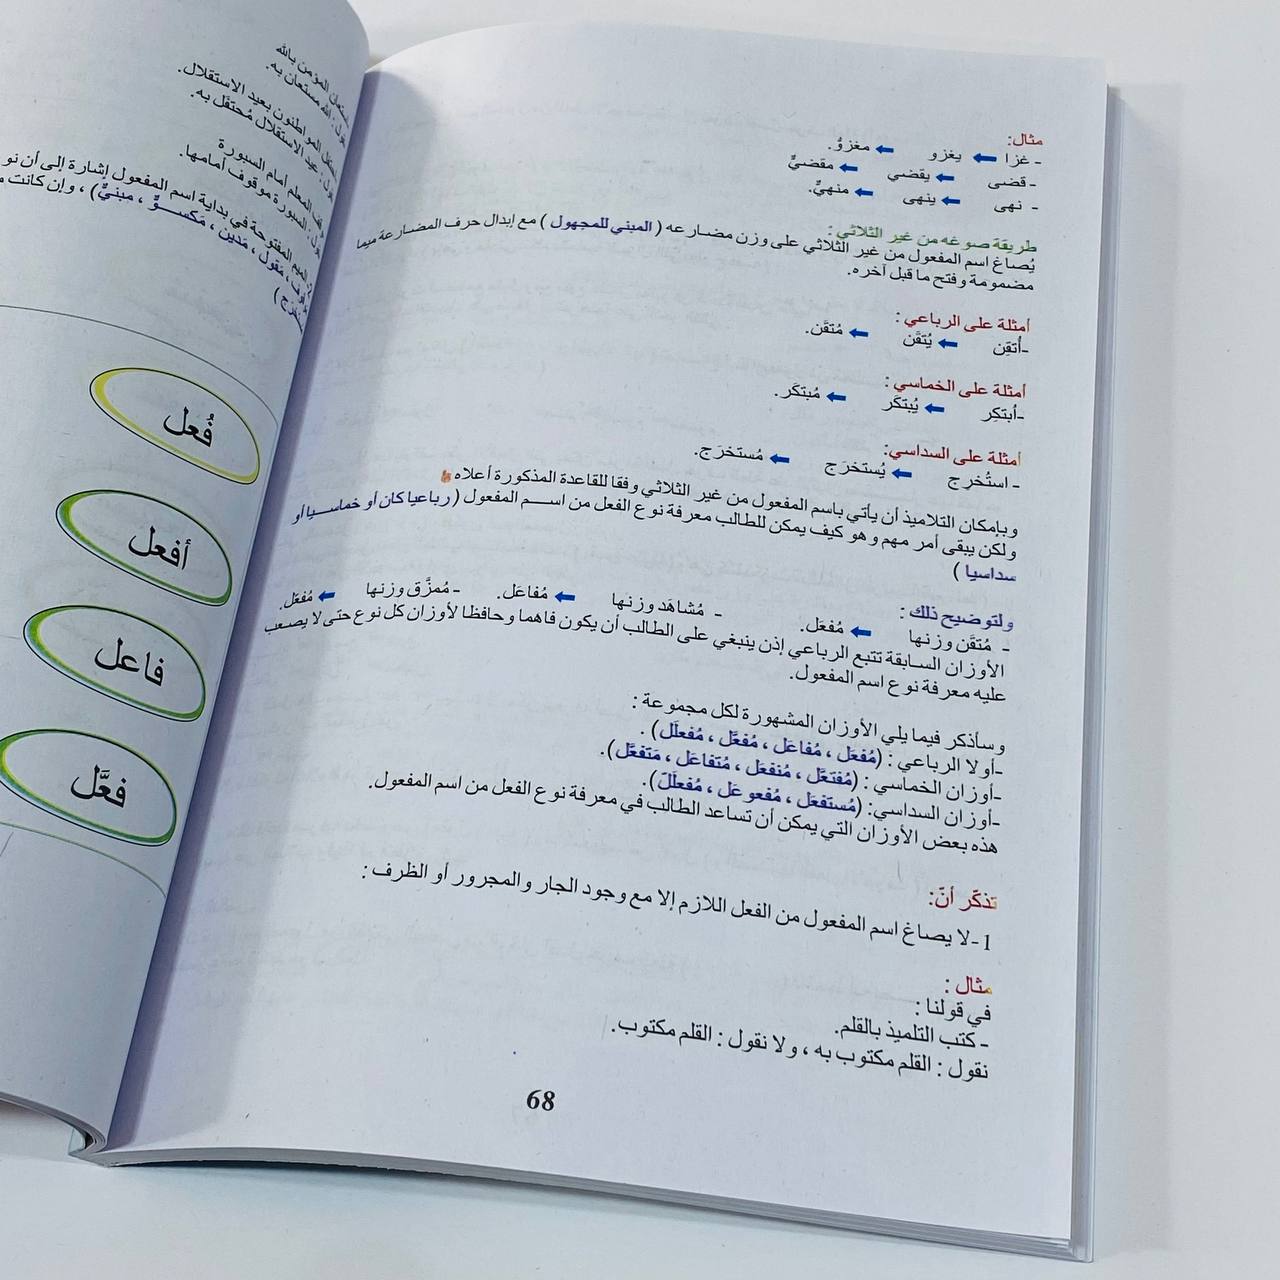 مثال:
- غزا ← يغزو ← مغزوٌّ.
- قضى ← يقضي ← مقضيٌّ
- نهى ← ينهى ← منهيٌّ.
طريقة صوغه من غير الثلاثي:
يُصاغ اسم المفعول من غير الثلاثي على وزن مضارعه (المبني للمجهول) مع إبدال حرف المضارعة ميما
مضمومة وفتح ما قبل آخره.
أمثلة على الرباعي:
-أُتقِن ← يُتقَن ← مُتقَن.
أمثلة على الخماسي:
-اُبتكِر ← يُبتكَر ← مُبتكَر.
أمثلة على السداسي:
- استُخرِج ← يُستخرَج ← مُستخرَج.
وبإمكان التلاميذ أن يأتي باسم المفعول من غير الثلاثي وفقا للقاعدة المذكورة أعلاه
ولكن يبقى أمر مهم وهو كيف يمكن للطالب معرفة نوع الفعل من اسم المفعول (رباعيا كان أو خماسيا أو
سداسيا)
ولتوضيح ذلك:
- مُتقَن وزنها ← مُفعَل. - مُشاهَد وزنها ← مُفاعَل. - مُمزَّق وزنها ← مُفعَّل.
الأوزان السابقة تتبع الرباعي إذن ينبغي على الطالب أن يكون فاهما وحافظا لأوزان كل نوع حتى لا يصعب
عليه معرفة نوع اسم المفعول.
وسأذكر فيما يلي الأوزان المشهورة لكل مجموعة:
-أولا الرباعي: (مُفعَل، مُفاعَل، مُفعَّل، مُفعلَل).
-أوزان الخماسي: (مُفتعَل، مُنفعَل، مُتفاعَل، مَتفعَّل).
-أوزان السداسي: (مُستفعَل، مُفعوعَل، مُفعلَلّ).
هذه بعض الأوزان التي يمكن أن تساعد الطالب في معرفة نوع الفعل من اسم المفعول.
تذكّر أنّ:
1-لا يصاغ اسم المفعول من الفعل اللازم إلا مع وجود الجار والمجرور أو الظرف:
مثال:
في قولنا:
- كتب التلميذ بالقلم.
نقول: القلم مكتوب به، ولا نقول: القلم مكتوب.
68
المؤمن بالله
: الله مستعان به.
المواطنون بعيد الاستقلال.
: عيد الاستقلال مُحتفَل به.
المعلم أمام السبورة
: السبورة موقوف أمامها.
الميم المفتوحة في بداية اسم المفعول إشارة إلى أن نو
، مَقول، مَدين، مَكسوٌّ، مبنيٌّ)، وإن كانت
فُعل
أفعل
فاعل
فعَّل